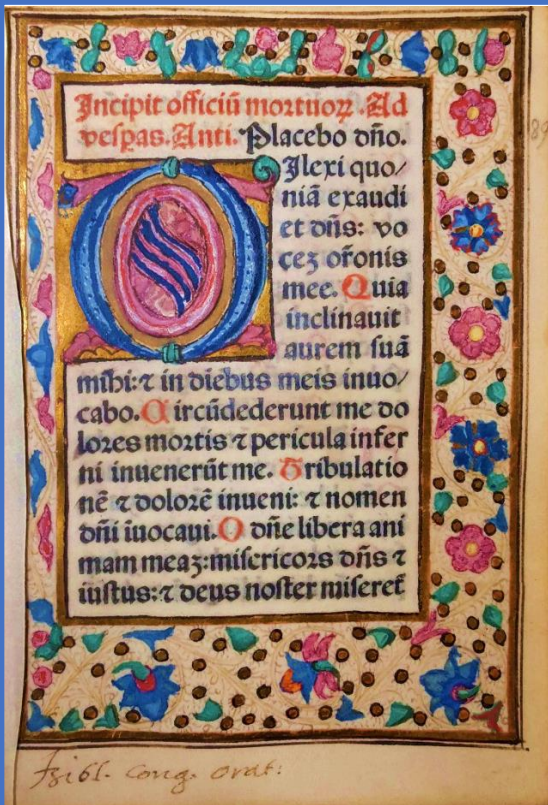 Incipit officiū mortuoꝝ. Ad
vesꝑas. Anti. Placebo dño.
Dilexi quo/
niā exaudi
et dñs: vo
cez or̃onis
mee. Quia
inclinauit
aurem suā
mihi: ⁊ in diebus meis inuo/
cabo. Circūdederunt me do
lores mortis ⁊ pericula infer
ni inuenerūt me. Tribulatio
nē ⁊ dolorē inueni: ⁊ nomen
dñi īuocaui. O dñe libera ani
mam meaz: misericors dñs ⁊
iustus: ⁊ deus noster miseret̃
cong. orat:
89